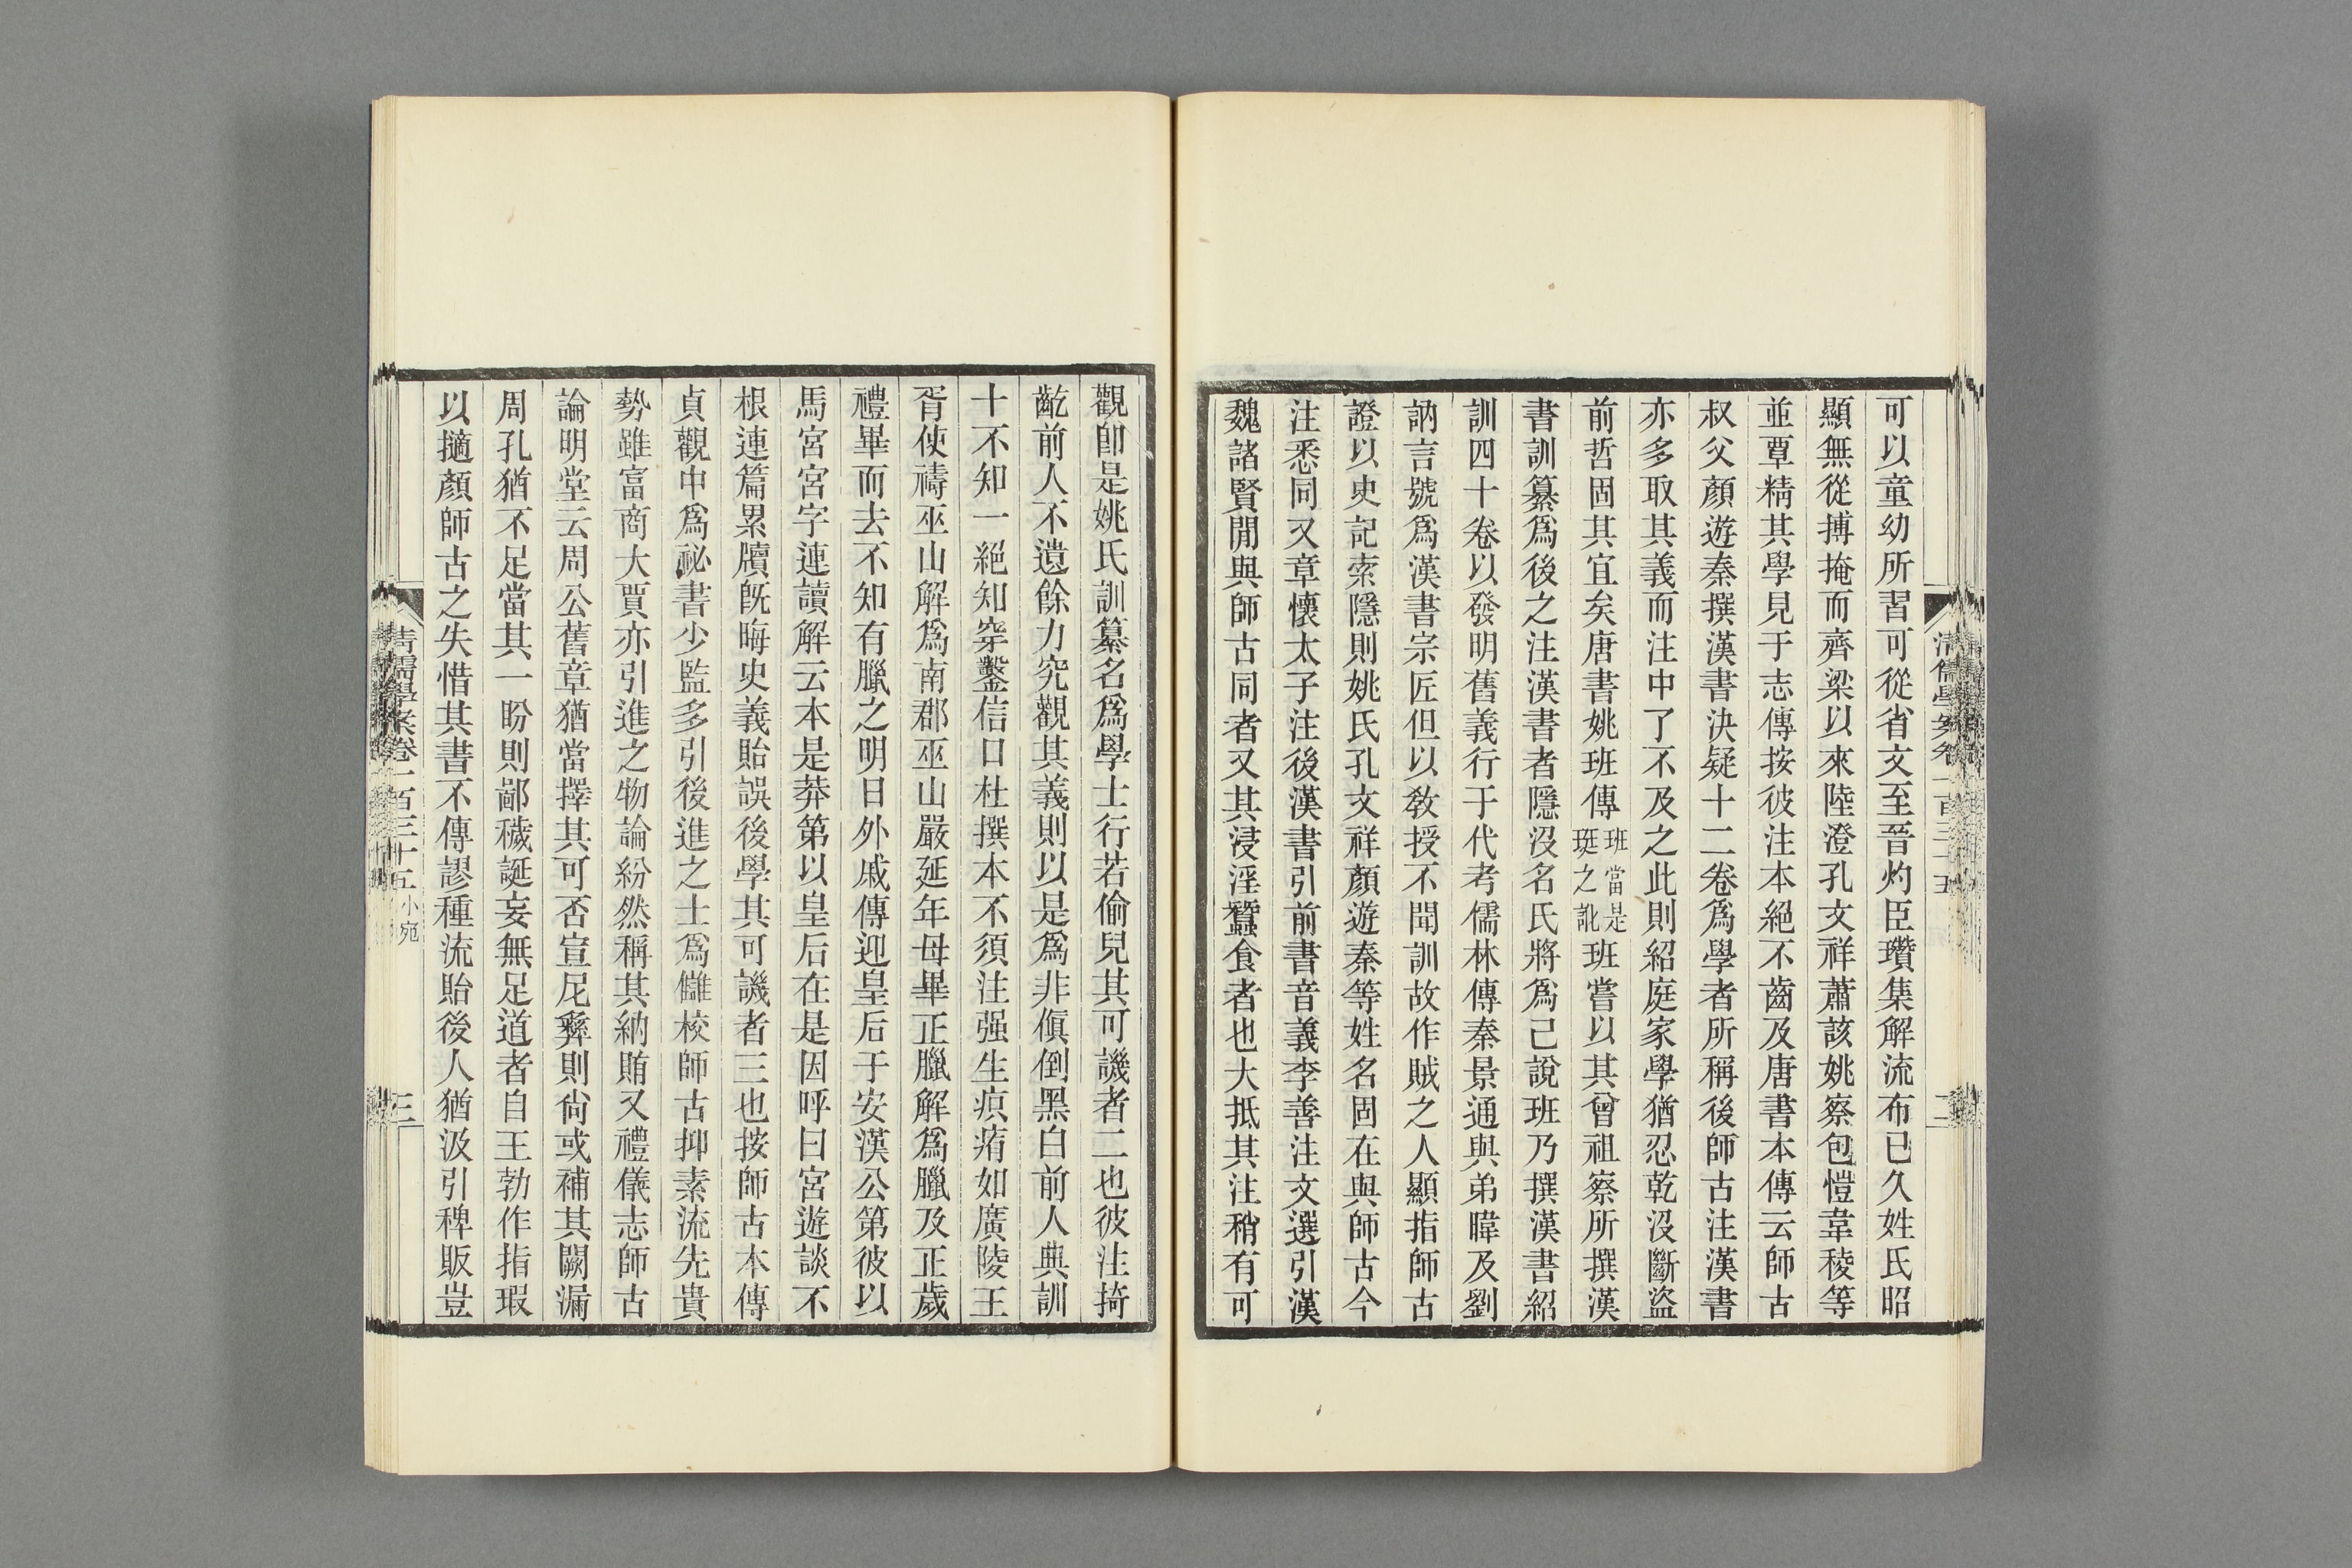 可以童幼所習可從省文至晉灼臣瓚集解流布已久姓氏昭
顯無從搏掩而齊梁以來陸澄孔文祥蕭該姚察包愷韋稜等
並覃精其學見于志傳按彼注本絕不齒及唐書本傳云師古
叔父顏遊秦撰漢書決疑十二卷爲學者所稱後師古注漢書
亦多取其義而注中了不及之此則紹庭家學猶忍乾沒斷盜
前哲固其宜矣唐書姚班傳班當是珽之訛班嘗以其曾祖察所撰漢
書訓纂爲後之注漢書者隱沒名氏將爲己說班乃撰漢書紹
訓四十卷以發明舊義行于代考儒林傳秦景通與弟暐及劉
訥言號爲漢書宗匠但以敎授不聞訓故作賊之人顯指師古
證以史記索隱則姚氏孔文祥顏遊秦等姓名固在與師古今
注悉同又章懷太子注後漢書引前書音義李善注文選引漢
魏諸賢閒與師古同者又其浸淫蠶食者也大抵其注稍有可
觀卽是姚氏訓纂名爲學士行若偷兒其可譏者二也彼注掎
齕前人不遺餘力究觀其義則以是爲非傎倒黑白前人典訓
十不知一絕知穿鑿信口杜撰本不須注强生疻痏如廣陵王
胥使禱巫山解爲南郡巫山嚴延年母畢正臘解爲臘及正歲
禮畢而去不知有臘之明日外戚傳迎皇后于安漢公第彼以
馬宮宮字連讀解云本是莽第以皇后在是因呼曰宮遊談不
根連篇累牘旣晦史義貽誤後學其可譏者三也按師古本傳
貞觀中爲祕書少監多引後進之士爲讎校師古抑素流先貴
勢雖富商大賈亦引進之物論紛然稱其納賄又禮儀志師古
論明堂云周公舊章猶當擇其可否宣尼彝則尙或補其闕漏
周孔猶不足當其一盼則鄙穢誕妄無足道者自王勃作指瑕
以擿顏師古之失惜其書不傳謬種流貽後人猶汲引稗販豈
清儒學案卷一百三十五 小宛
三